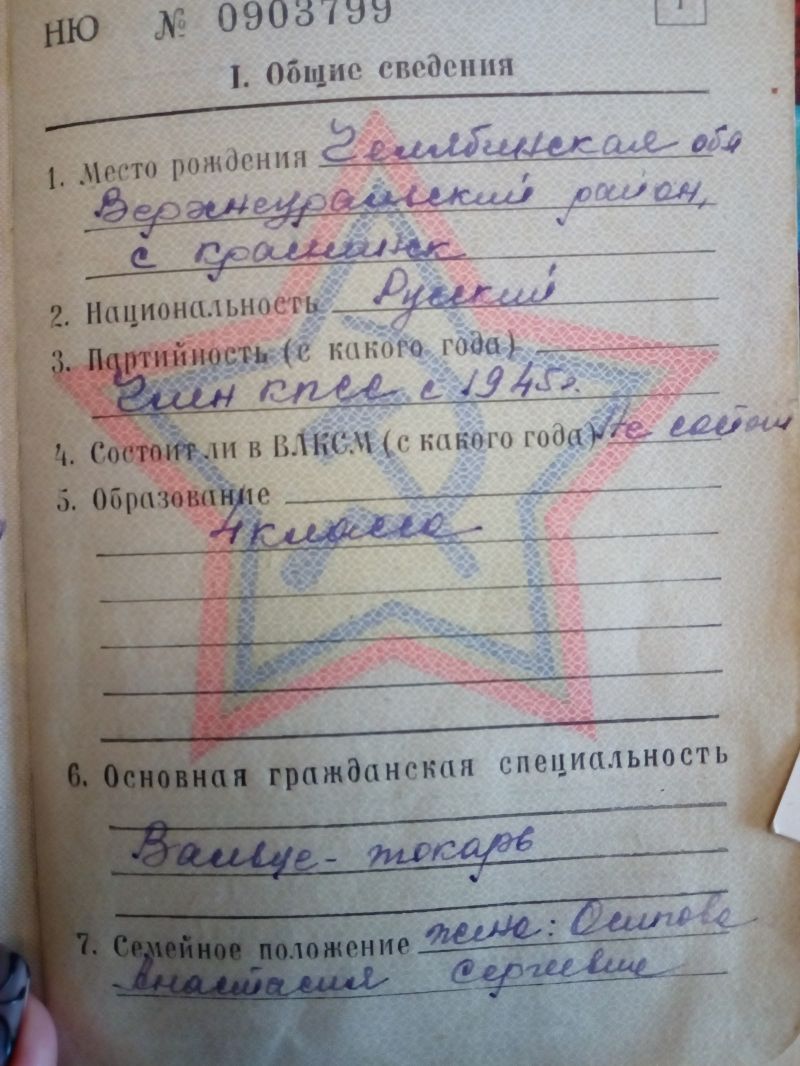 НЮ № 0903799 1
I. Общие сведения
1. Место рождения Челябинская обл
Верхнеуральский район,
с Краснинск
2. Национальность Русский
3. Партийность (с какого года)
Член КПСС с 1945г.
4. Состоит ли в ВЛКСМ (с какого года) Не состоит
5. Образование
4 класса
6. Основная гражданская специальность
токарь
7. Семейное положение жена: Осипова
Анастасия Сергеевна